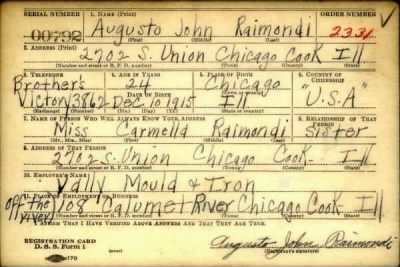 SERIAL NUMBER 1. NAME (Print)
00792 Augusto John Raimondi 2334
(First) (Middle) (Last)
2. ADDRESS (Print)
2702 S. Union Chicago Cook Ill
(Number and street or R. F. D. number) (Town) (County) (State)
3. TELEPHONE 4. AGE IN YEARS 5. PLACE OF BIRTH 6. COUNTRY OF CITIZENSHIP
Brother's 24 Chicago
DATE OF BIRTH
Victory 3862 Dec 10 1915 Ill "U.S.A"
7. NAME OF PERSON WHO WILL ALWAYS KNOW YOUR ADDRESS 8. RELATIONSHIP OF THAT PERSON
Miss Carmella Raimondi sister
9. ADDRESS OF THAT PERSON
2702 S. Union Chicago Cook Ill
(Number and street or R. F. D. number) (Town) (County) (State)
10. EMPLOYER'S NAME
Vally Mould & Iron
11. PLACE OF EMPLOYMENT OR BUSINESS
off the river 108 "Calumet River Chicago Cook Ill
(Number and street or R. F. D. number) (Town) (County) (State)
I AFFIRM THAT I HAVE VERIFIED ABOVE ANSWERS AND THAT THEY ARE TRUE.
REGISTRATION CARD
D. S. S. Form 1
Augusto John Raimondi